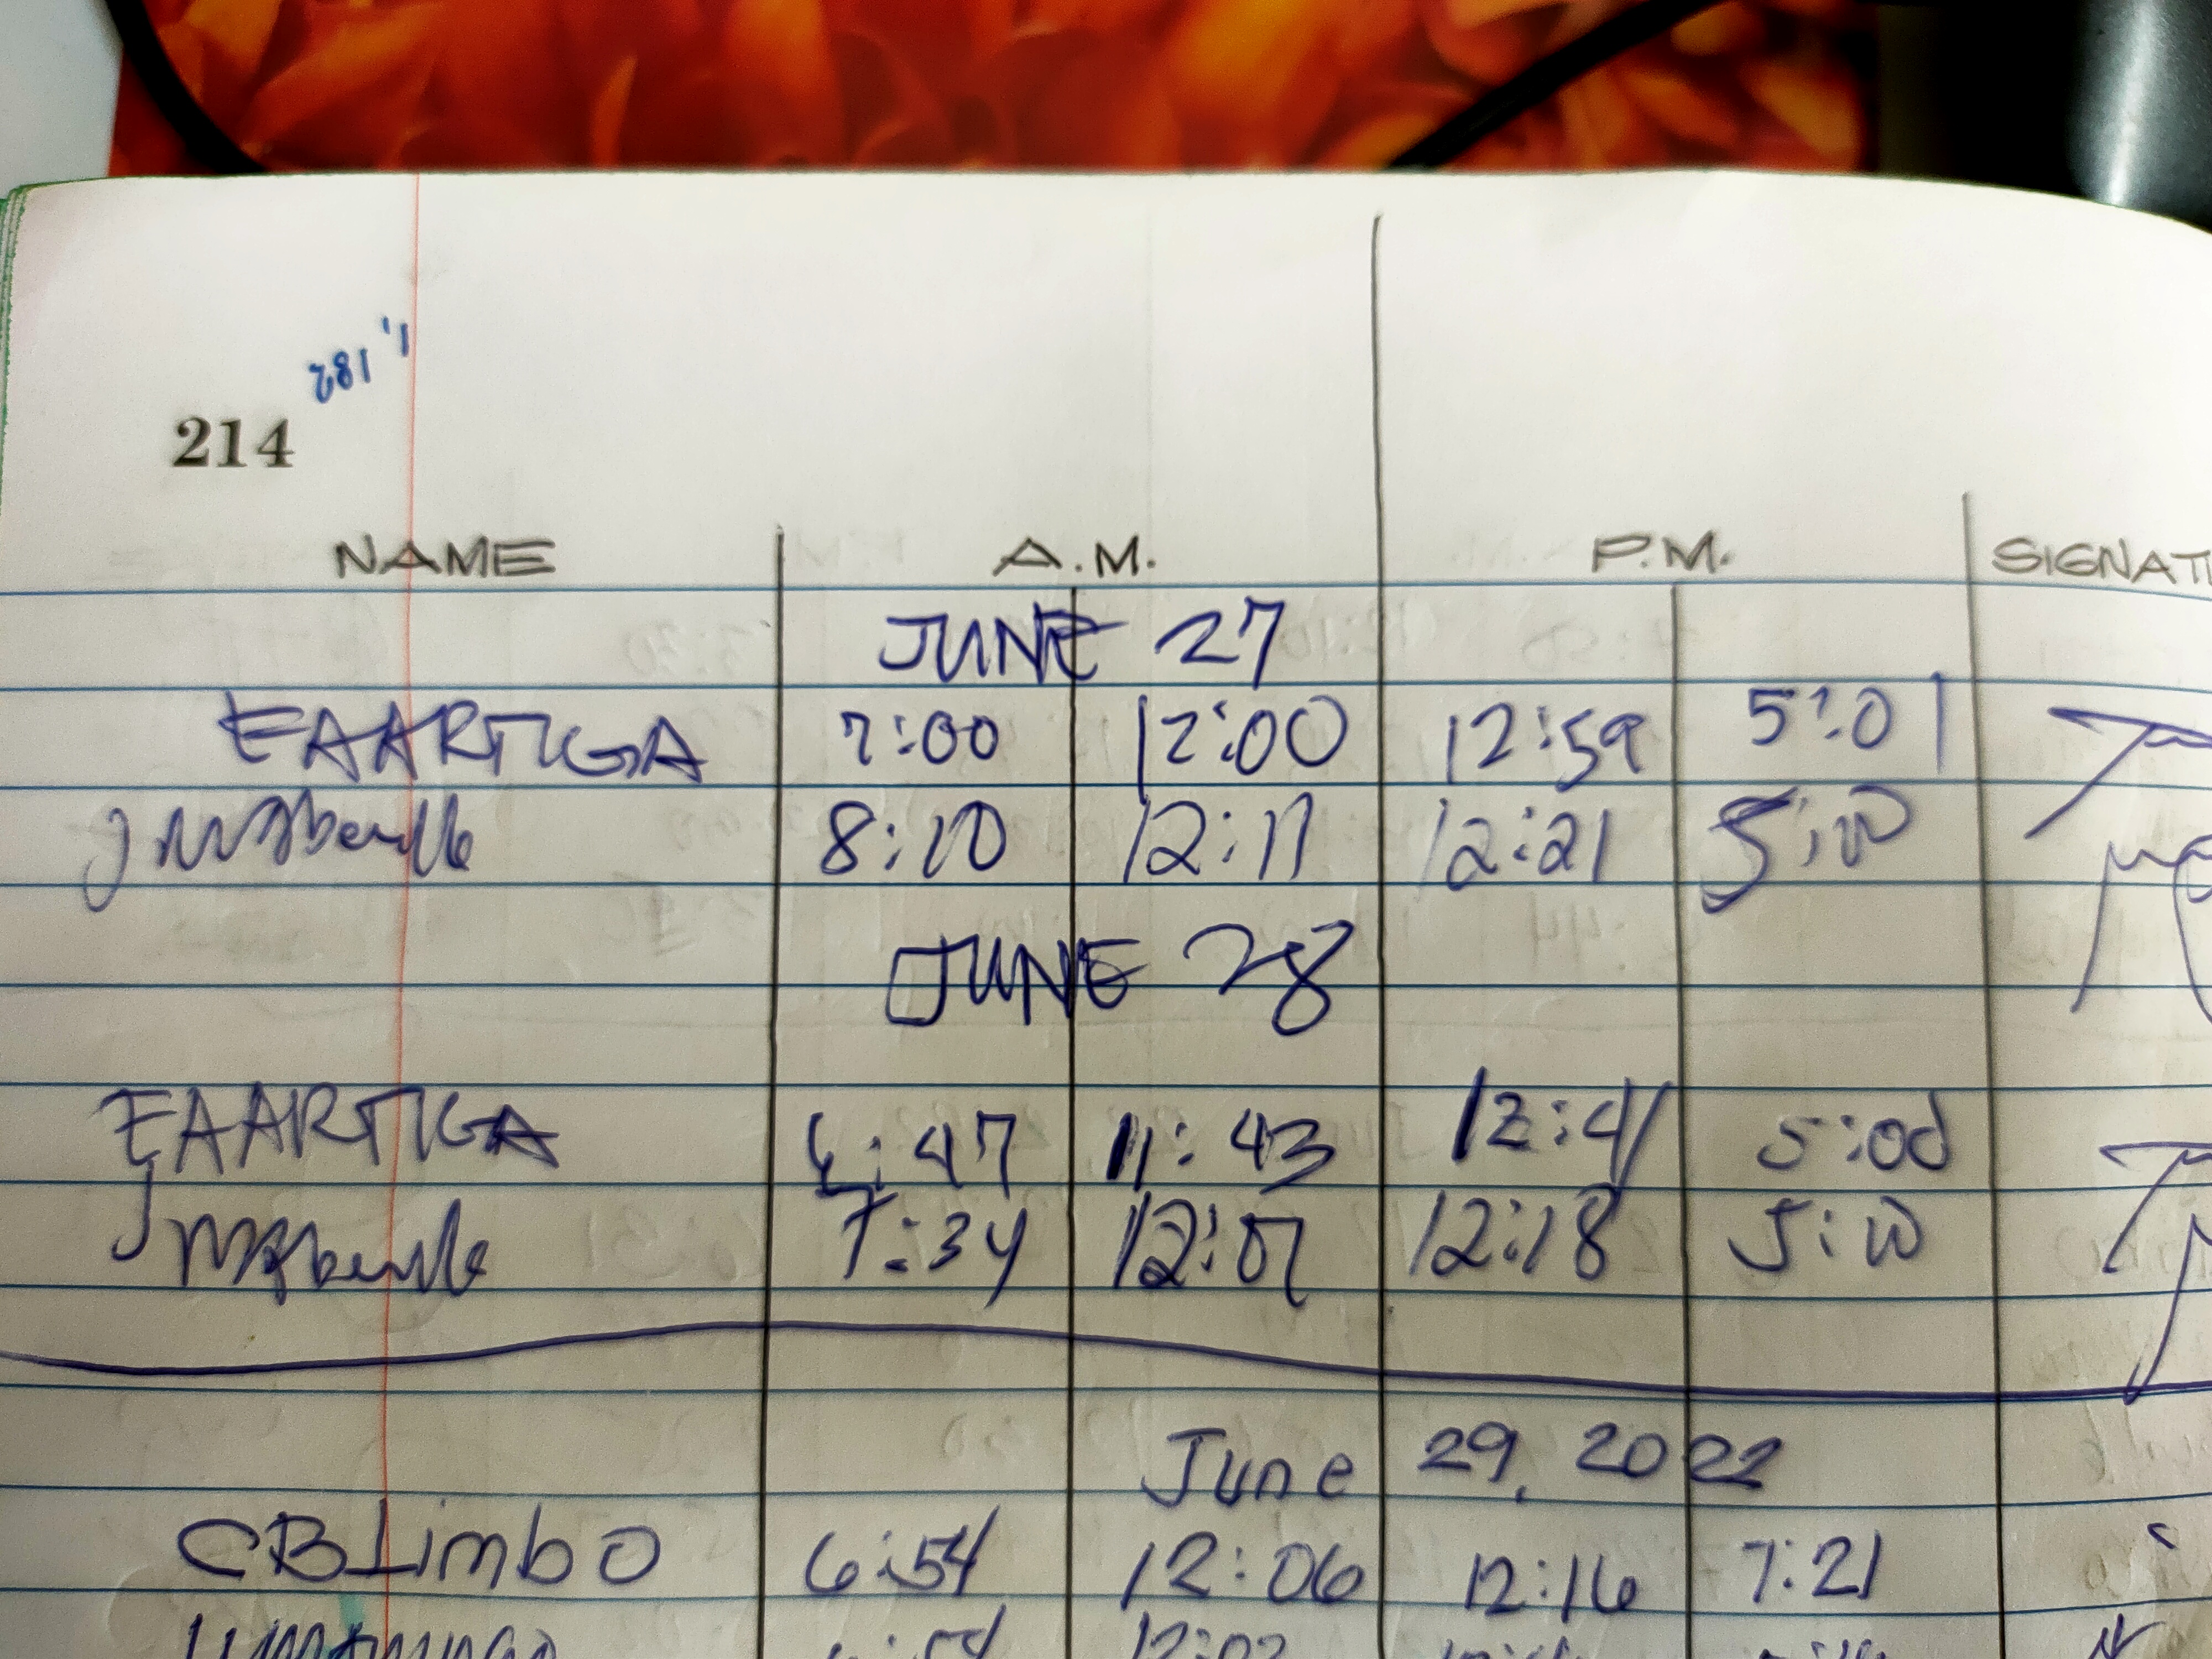 1, 182
214
NAME A.M. P.M. SIGNAT
JUNE 27
EAARTIGA 7:00 12:00 12:59 5:01
8:10 12:11 12:21 5:10
JUNE 28
EAARTIGA 6:47 11:43 12:41 5:00
7:34 12:07 12:18 5:10
June 29, 2022
CBLimbo 6:54 12:06 12:16 7:21